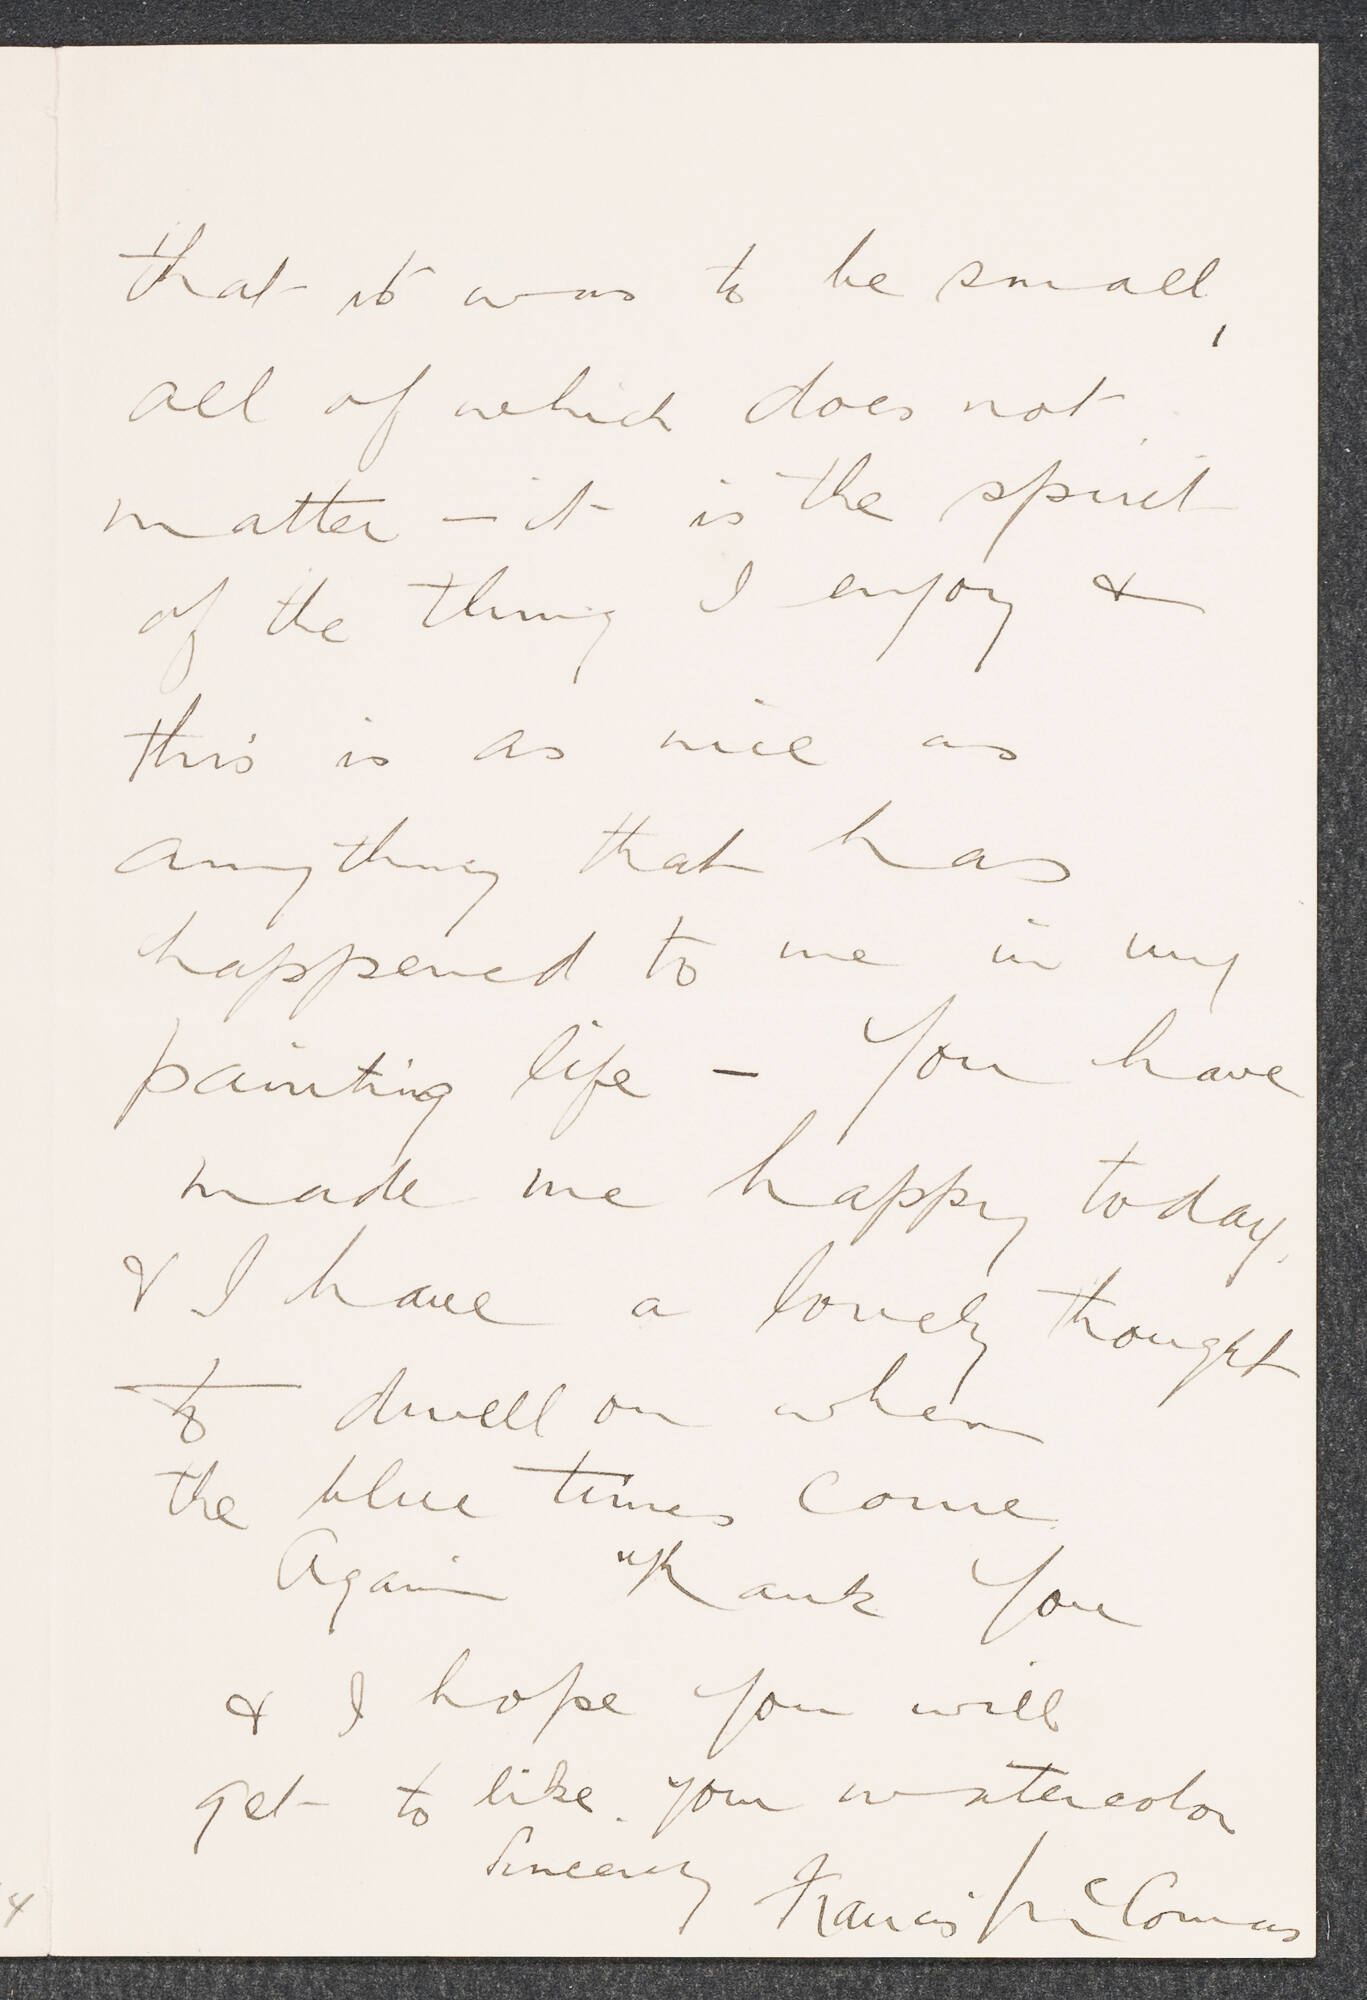 that it was to be small,
all of which does not
matter - it is the spirit
of the thing I enjoy &
this is as nice as
anything that has
happened to me in my
painting life - You have
made me happy today,
& I have a lovely thought
to dwell on when
the blue times come.
Again Thank You
& I hope you will
get to like your watercolor
Sincerely Francis McComas
4